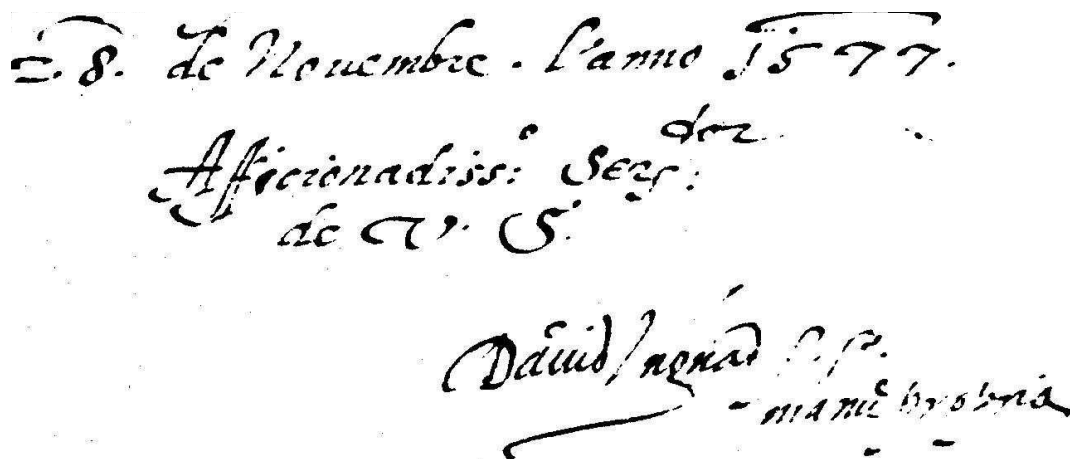 28. de Novembre. l'anno 1577.
Afficionadiss:o Ser:dor
de V. S.
David Ungnad
manu propria